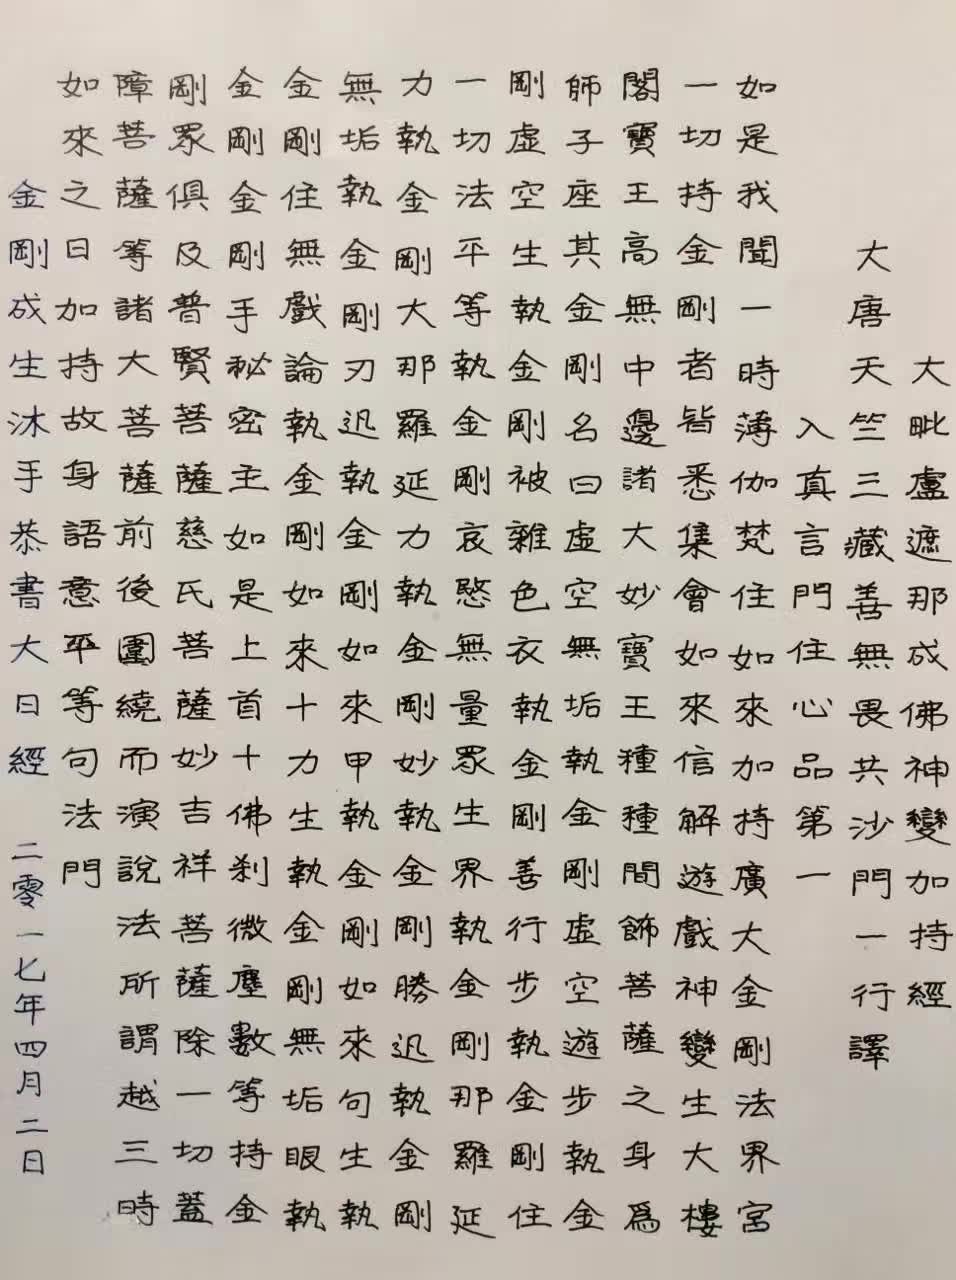 大毗盧遮那成佛神變加持經
大唐天竺三藏善無畏共沙門一行譯
入真言門住心品第一
如是我聞一時薄伽梵住如來加持廣大金剛法界宮
一切持金剛者皆悉集會如來信解遊戲神變生大樓
閣寶王高無中邊諸大妙寶王種種間飾菩薩之身為
師子座其金剛名曰虛空無垢執金剛虛空遊步執金
剛虛空生執金剛被雜色衣執金剛善行步執金剛住
一切法平等執金剛哀愍無量眾生界執金剛那羅延
力執金剛大那羅延力執金剛妙執金剛勝迅執金剛
無垢執金剛刃迅執金剛如來甲執金剛如來句生執
金剛住無戲論執金剛如來十力生執金剛無垢眼執
金剛金剛手秘密主如是上首十佛剎微塵數等持金
剛眾俱及普賢菩薩慈氏菩薩妙吉祥菩薩除一切蓋
障菩薩等諸大菩薩前後圍繞而演說法所謂越三時
如來之日加持故身語意平等句法門
金剛成生沐手恭書大日經 二零一七年四月二日